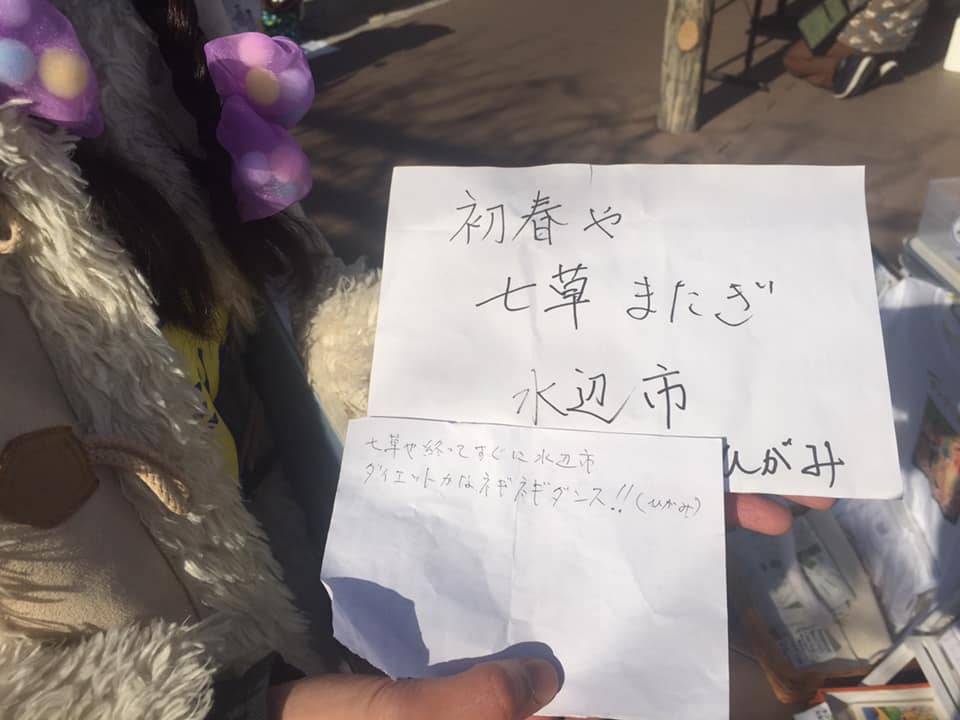 初春や
七草またぎ
水辺市
ひがみ
七草や終ってすぐに水辺市
ダイエットカなネギネギダンス!!(ひがみ)